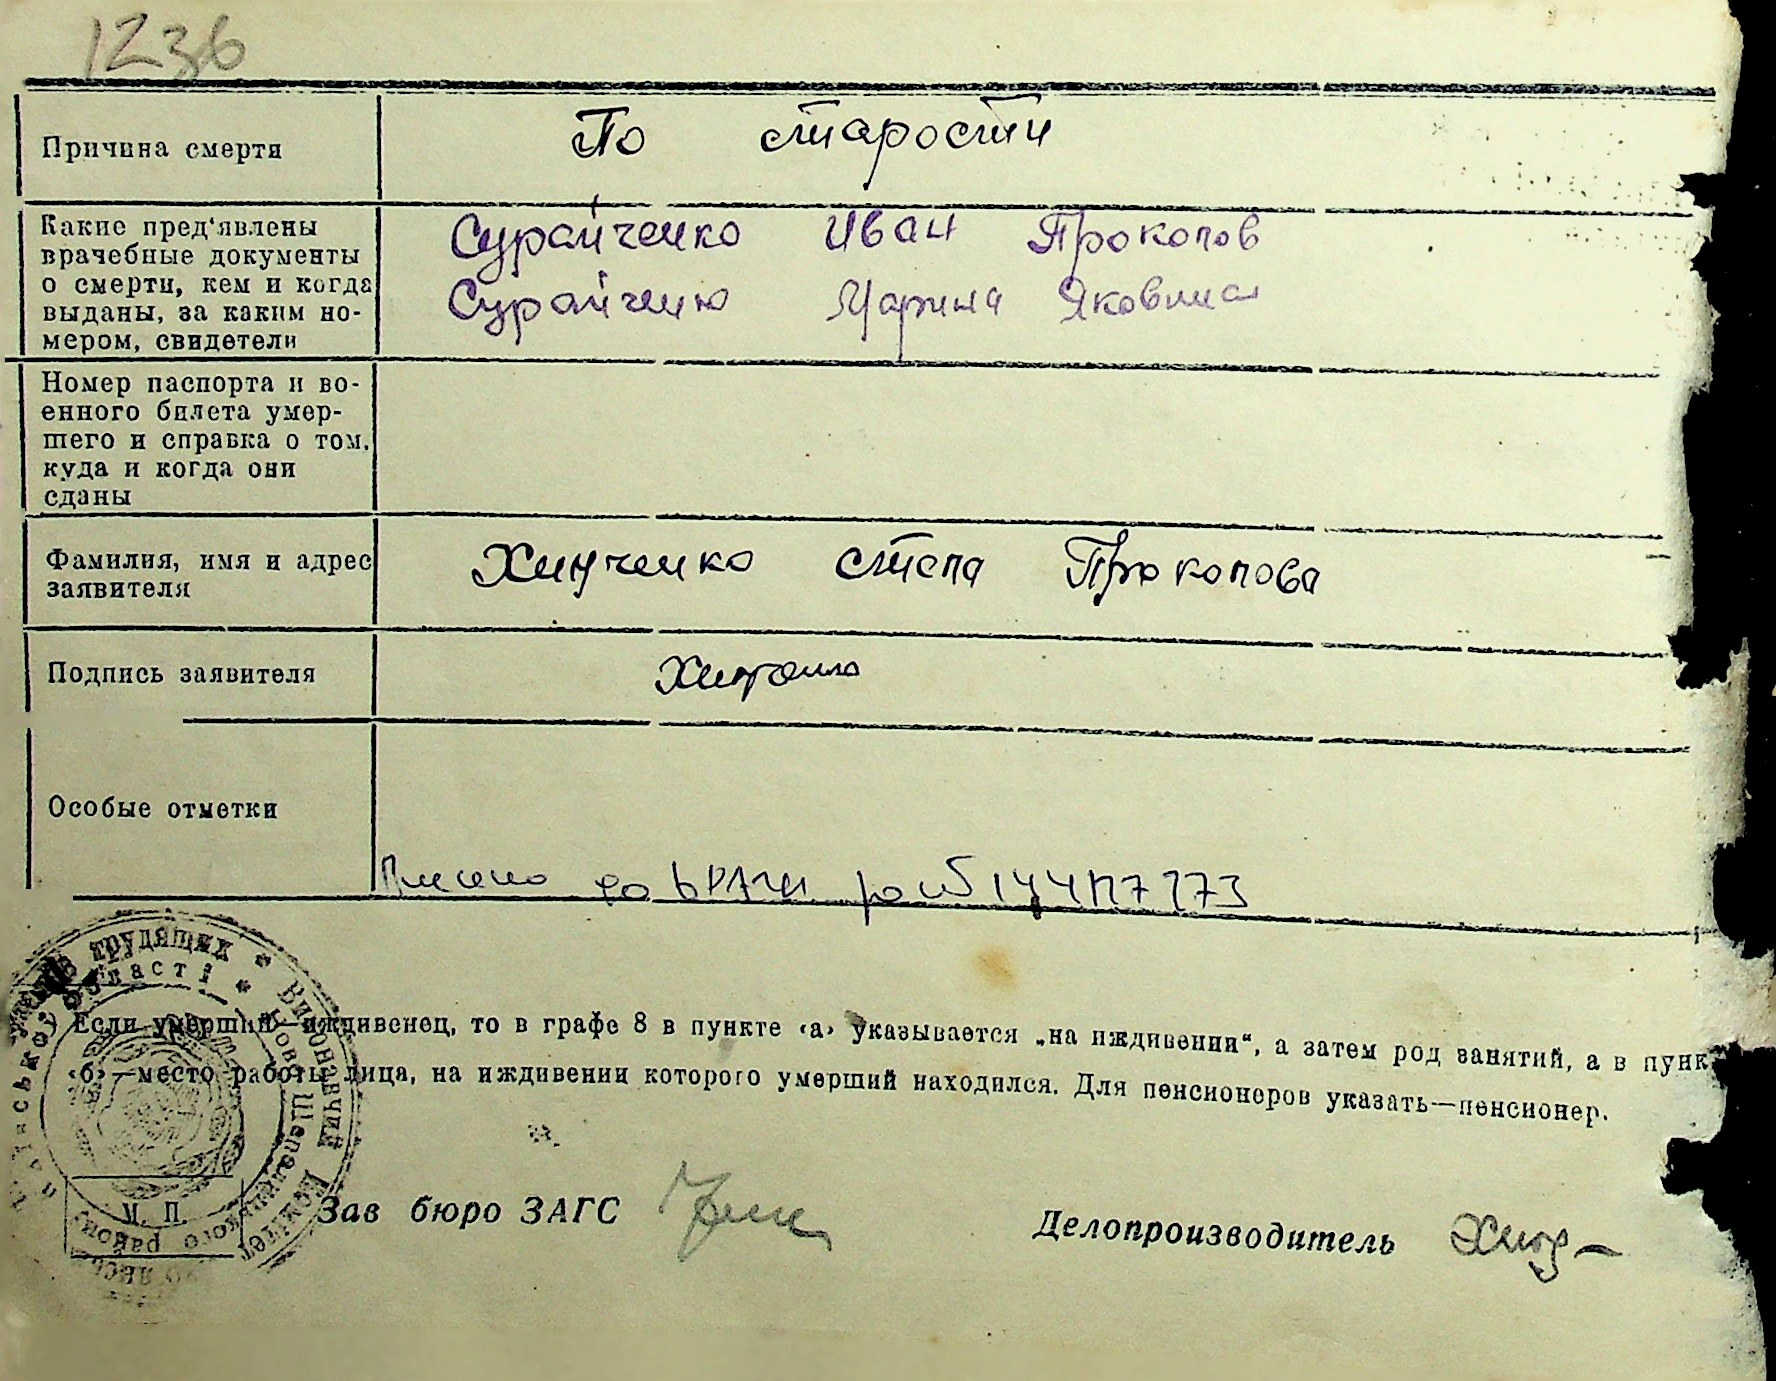 1236
Причина смерти
По старости
Какие пред'явлены
врачебные документы
о смерти, кем и когда
выданы, за каким но-
мером, свидетели
Сурайченко Иван Прокопов
Сурайченко Марина Яковлна
Номер паспорта и во-
енного билета умер-
шего и справка о том,
куда и когда они
сданы
Фамилия, имя и адрес
заявителя
Хинченко Степа Прокопова
Подпись заявителя
Особые отметки
Внесено до
Если умерший—иждивенец, то в графе 8 в пункте «а» указывается „на иждивении“, а затем род занятий, а в пунк
«б»—место работы лица, на иждивении которого умерший находился. Для пенсионеров указать—пенсионер.
трудящих * Виконавчий Комітет
області * Шепетівського району
М. П.
Зав бюро ЗАГС
Делопроизводитель